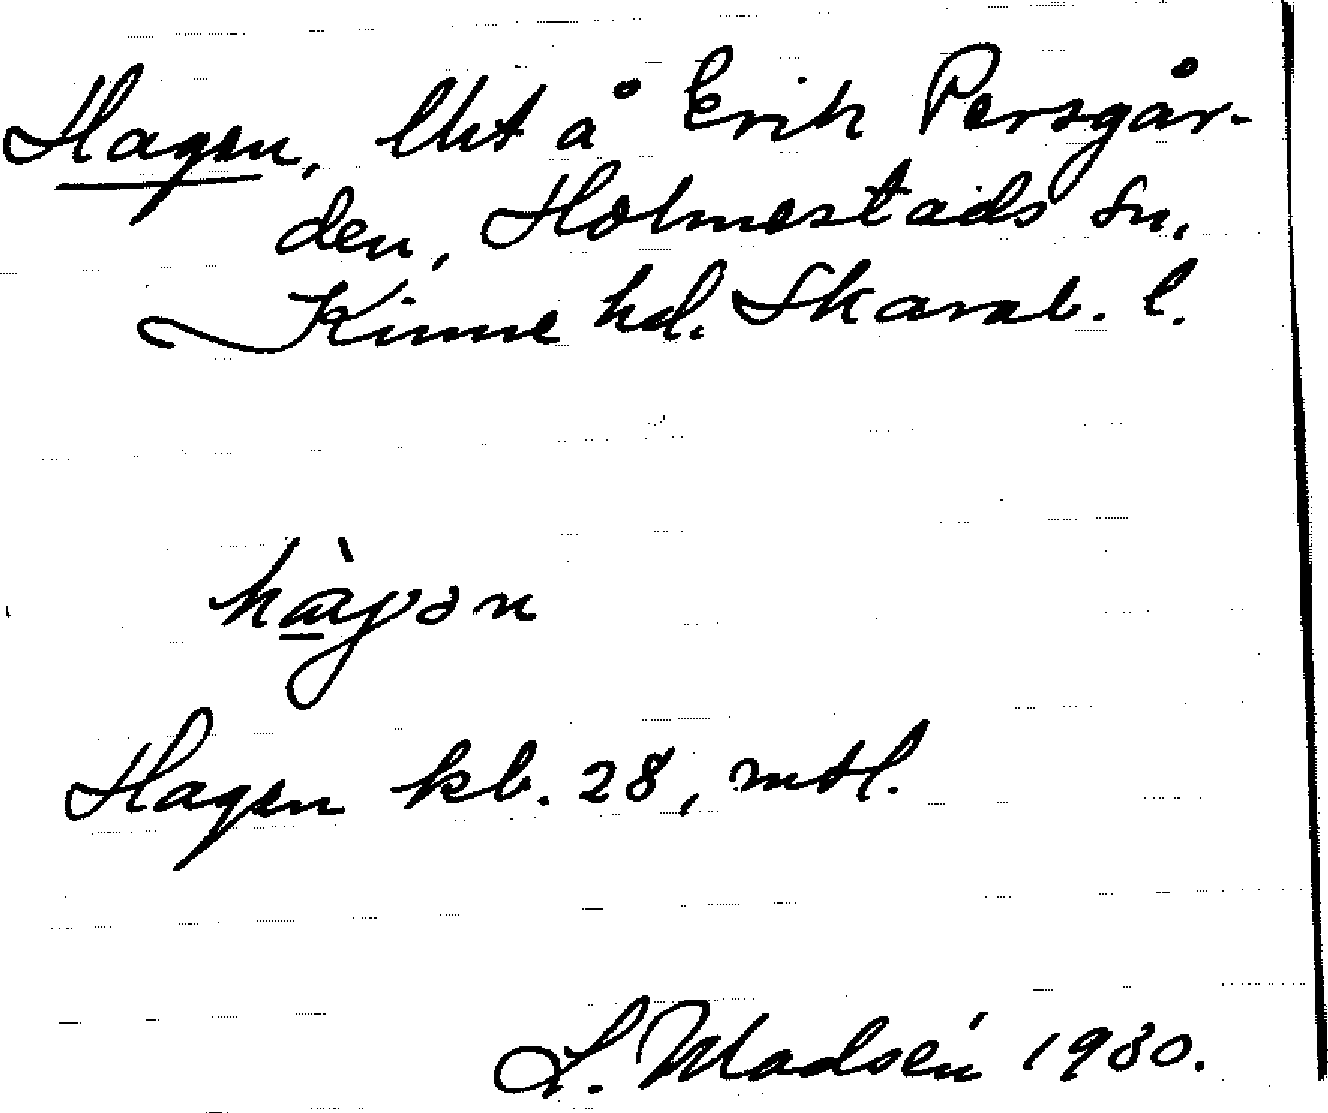 Hagen, lht å Erik Persgår-
den, Holmestads sn,
Kinne hd. Skarab. l.
hàgən
Hagen kb. 28, mtl.
L. Madsén 1930.